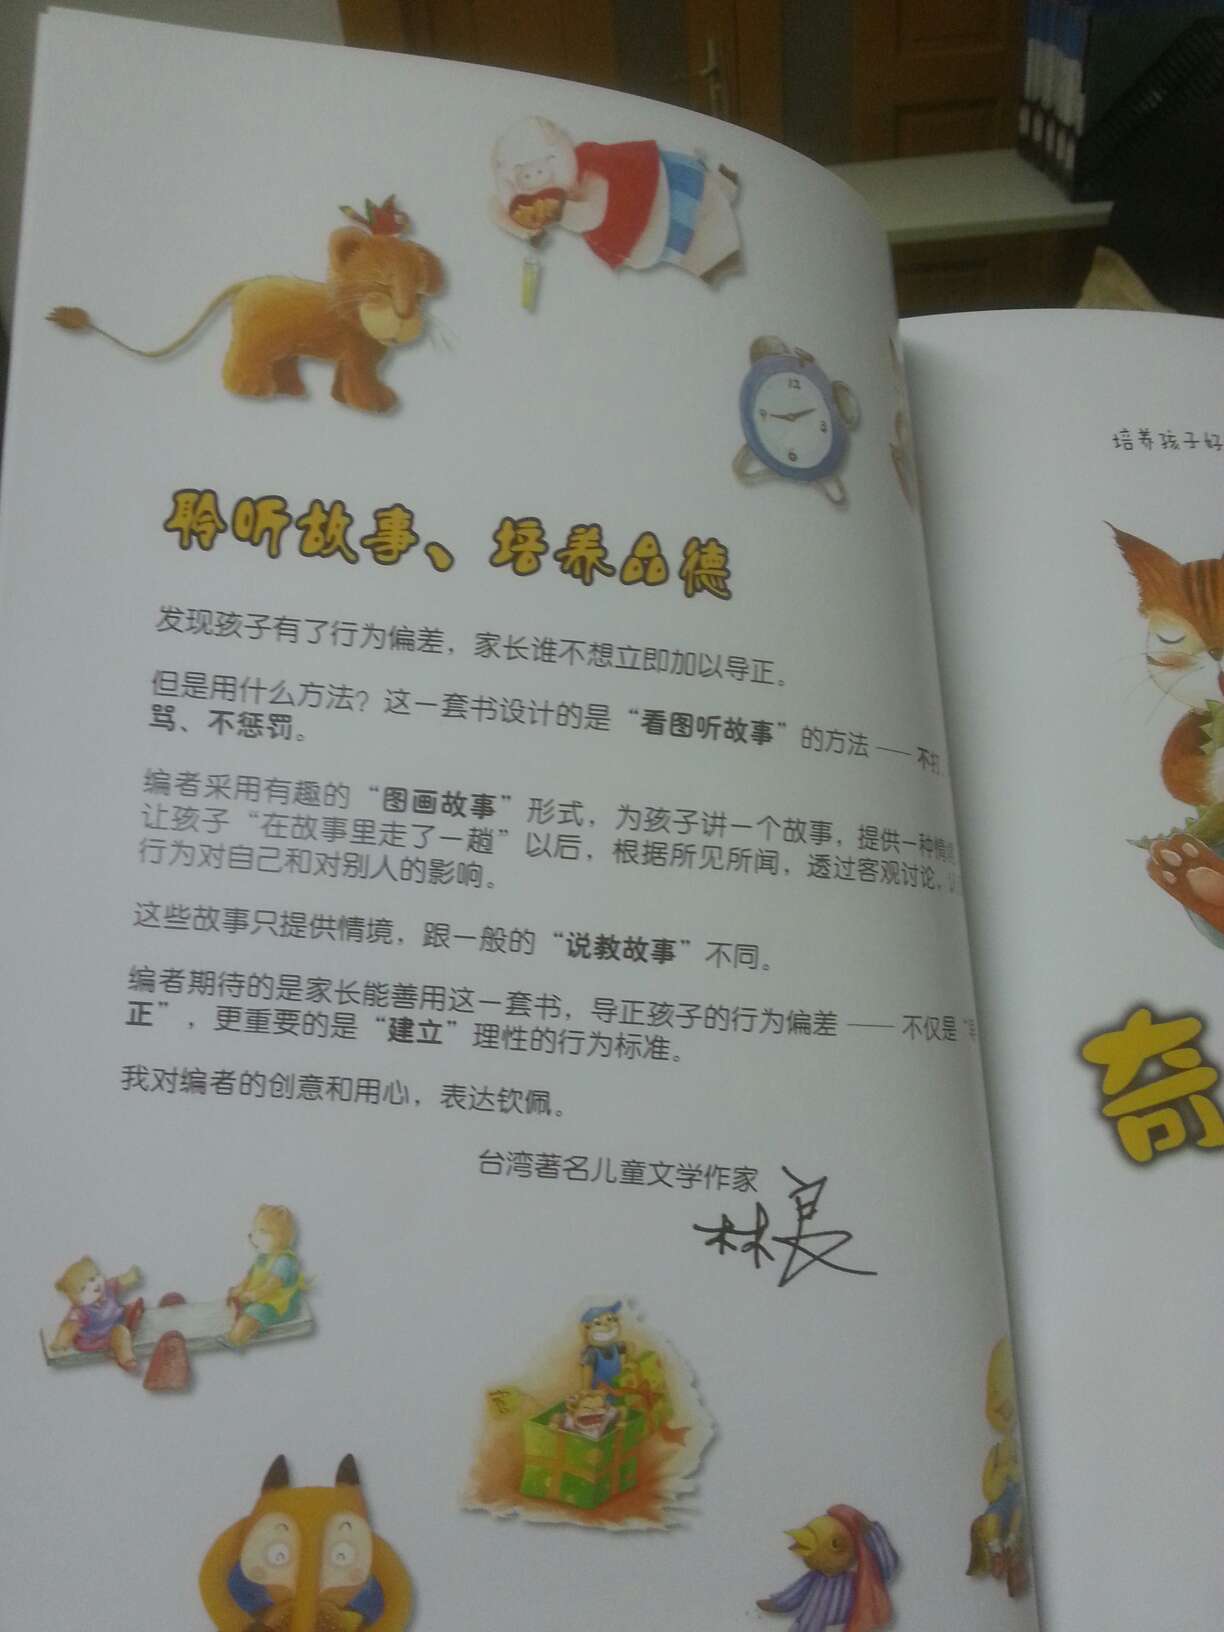 聆听故事、培养品德
发现孩子有了行为偏差，家长谁不想立即加以导正。
但是用什么方法？这一套书设计的是“看图听故事”的方法——不打、
骂、不惩罚。
编者采用有趣的“图画故事”形式，为孩子讲一个故事，提供一种情
让孩子“在故事里走了一趟”以后，根据所见所闻，透过客观讨论，
行为对自己和对别人的影响。
这些故事只提供情境，跟一般的“说教故事”不同。
编者期待的是家长能善用这一套书，导正孩子的行为偏差——不仅是“导
正”，更重要的是“建立”理性的行为标准。
我对编者的创意和用心，表达钦佩。
台湾著名儿童文学作家
林良
12
9
3
6
培养孩子好
奇